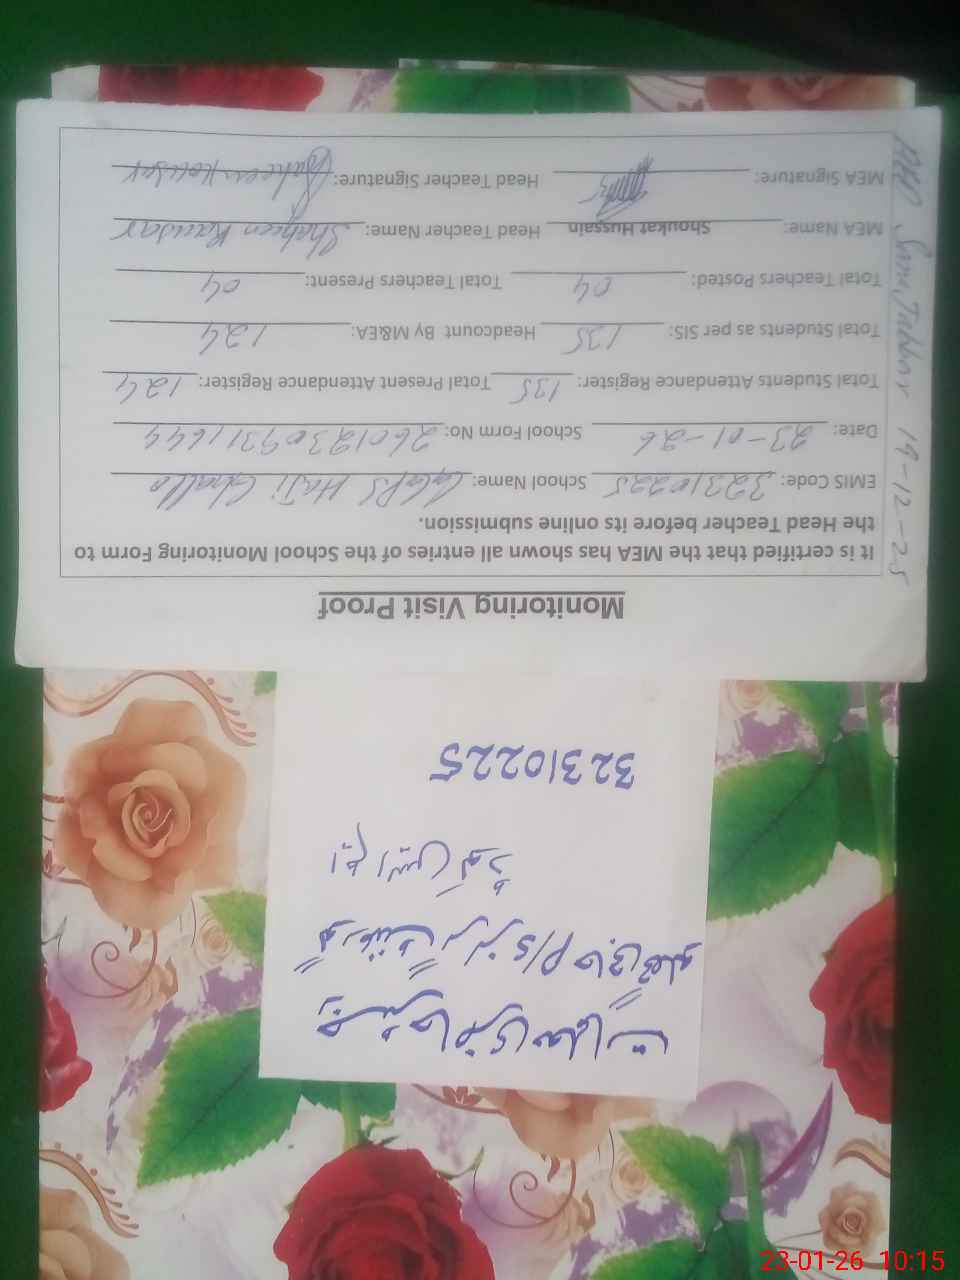 Monitoring Visit Proof
It is certified that the MEA has shown all entries of the School Monitoring Form to
the Head Teacher before its online submission.
EMIS Code: 32310225 School Name: GGPS Haji Challo
Date: 23-01-26 School Form No: 26012309311644
Total Students Attendance Register: 135 Total Present Attendant Register: 124
Total Students as per SIS: 135 Headcount By M&EA: 124
Total Teachers Posted: 04 Total Teachers Present: 04
MEA Name: Shoukat Hussain Head Teacher Name: Shaheen Kausar
MEA Signature: Head Teacher Signature: Shaheen Kousar
19-12-25
گورنمنٹ گرلز P/S حاجی چھلو
ایم ایس کوڈ
32310225
23-01-26 10:15